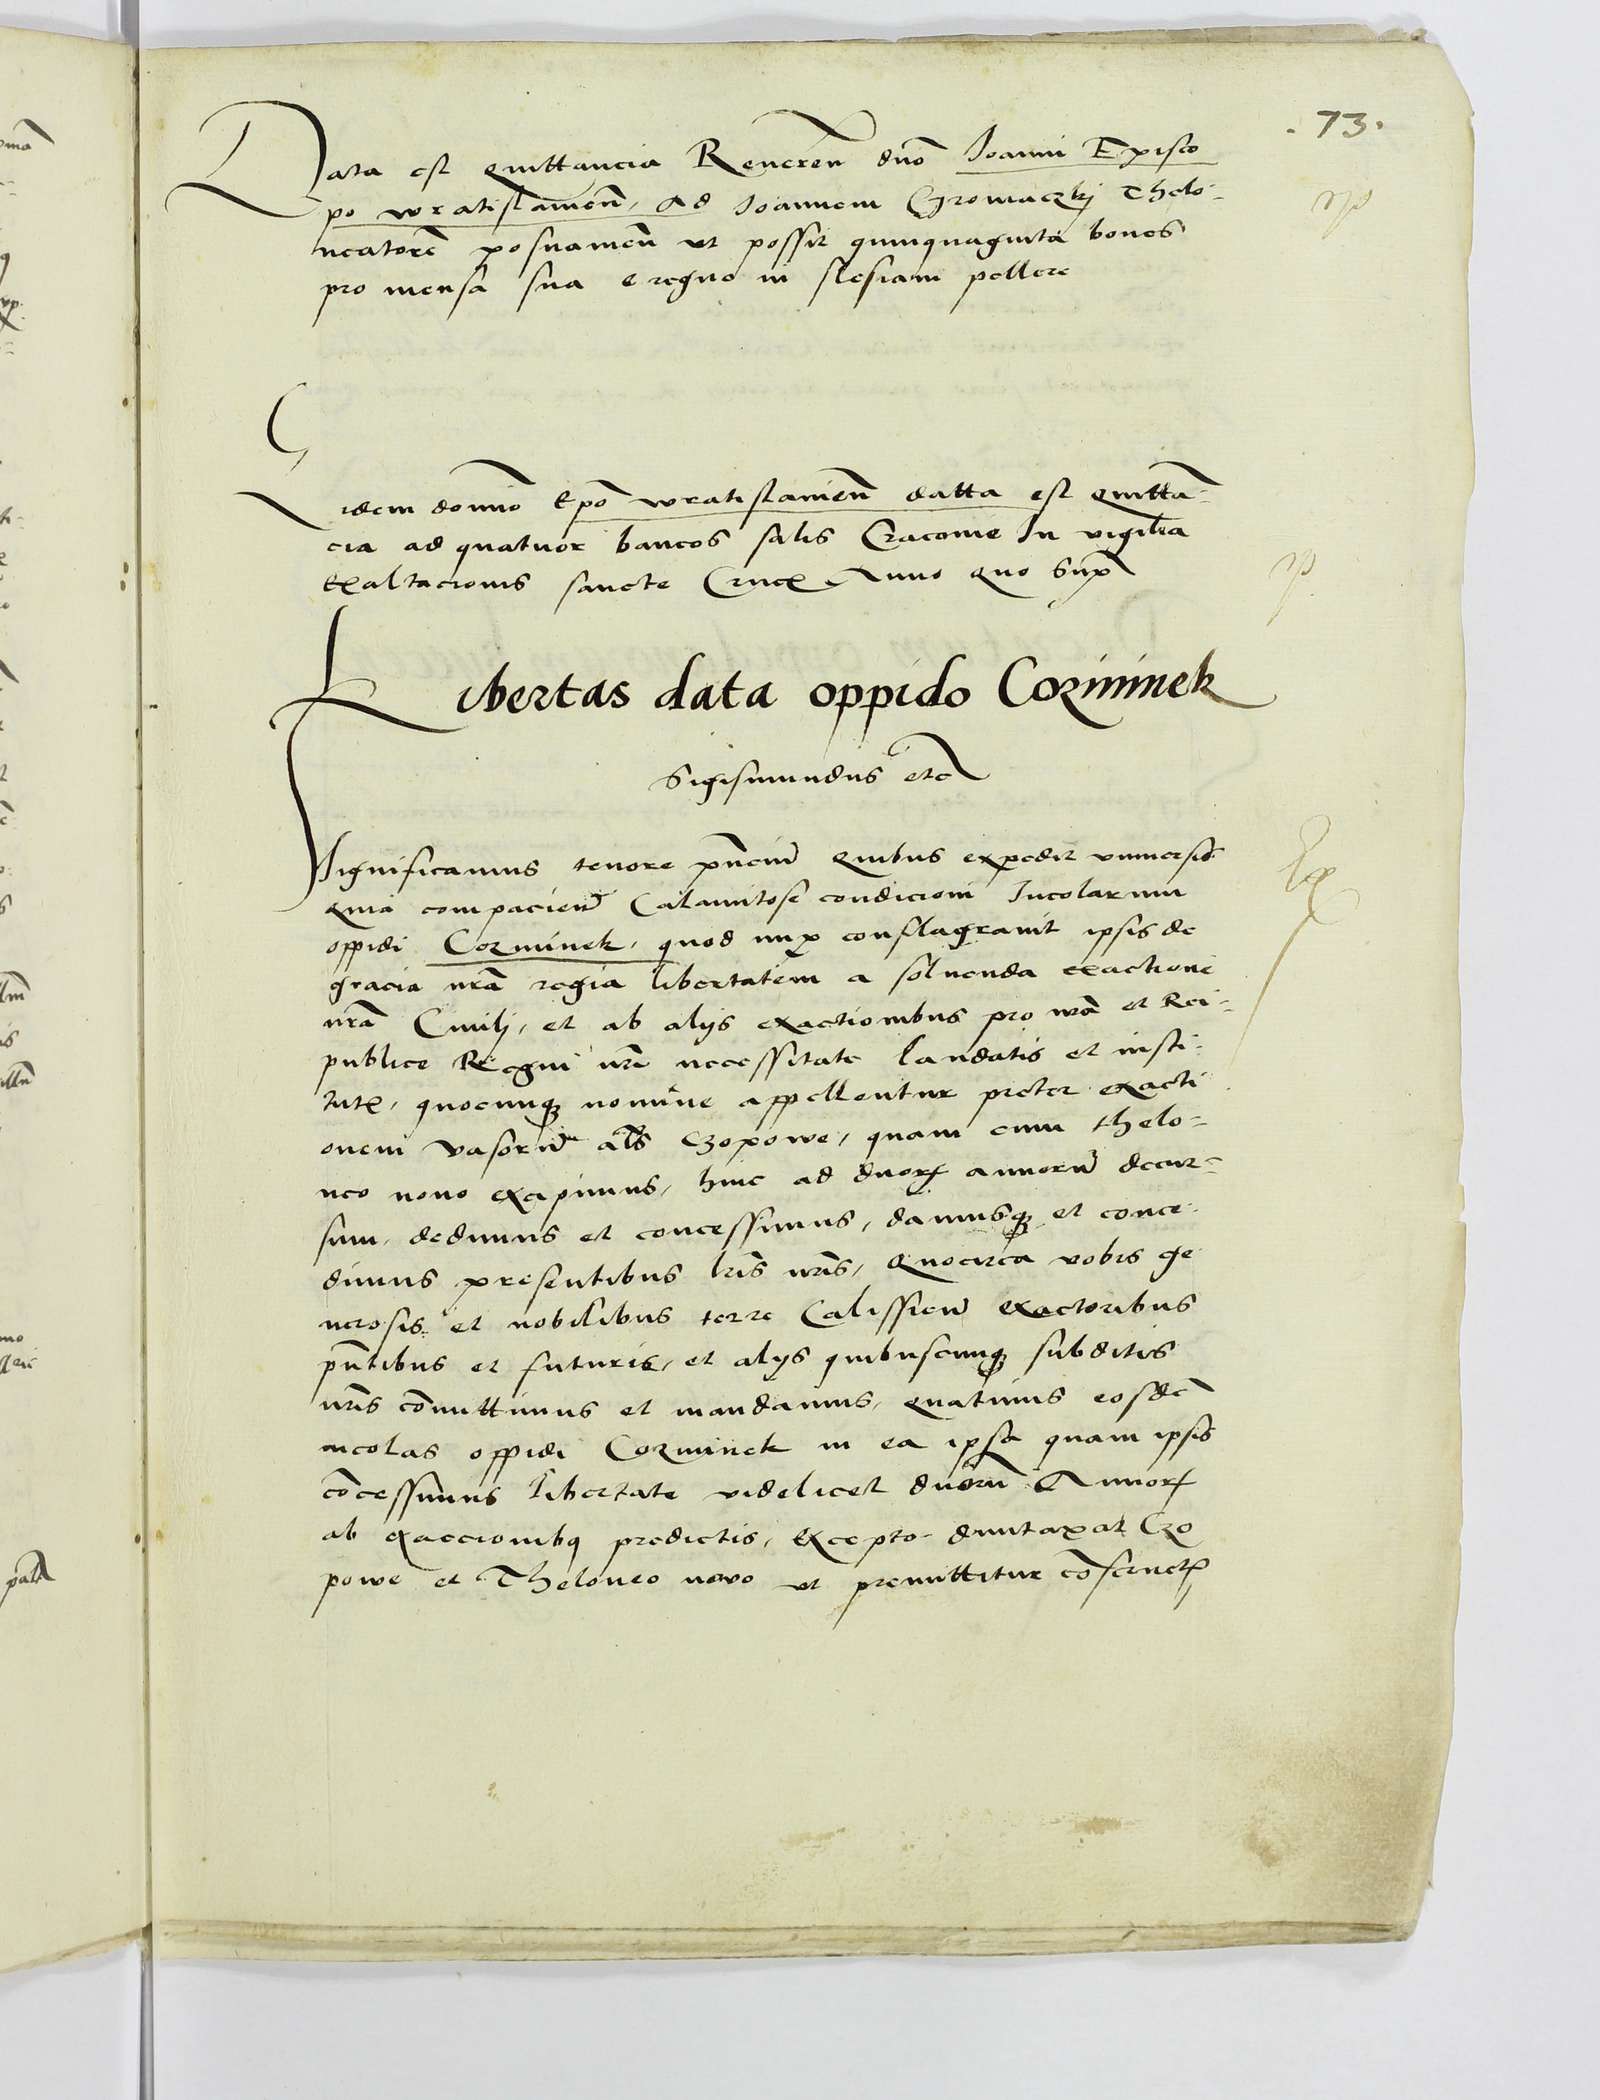 . 73 .
Data est quittancia Reveren̄ dn̄o Joanni Episco
po wratislamen̄, ad Joannem Gromaczkj Thelo-
neatorē posnamen̄ ut possit quinquaginta boves
pro mensa sua e regno in slesiam pellere
Eidem domino Ep̄o wratislavien̄ datta est quittā-
cia ad quatuor bancos salis Cracovie In vigilia
Exaltacionis sancte Crucꝭ Anno quo Supꝛ
Libertas data oppido Cozminek
Sigismundus etc
Significamus tenore pn̄cium̄ quibus expedit universis
quia compacien̄ Calamitose condicioni Incolarum
oppidi Cozminek, quod nup conflagravit ipsis de
gracia nrā regia libertatem a solvenda exactione
nrā Civilj, et ab alijs exactionibus pro nrā et Rei-
publice Regni nrī necessitate laudatis et insti-
tutꝭ, quocunqꝫ nomine appellentur preter exacti
onem vasorū al̄s Czopowe, quam cum thelo-
neo novo excipimus, hinc ad duorꝝ annorū decur-
sum, dedimus et concessimus, damusqꝫ et conce-
dimus presentibus lrīs nrīs, Quocirca vobis ge
nerosis et nobilibus terre Calissien̄ exactoribus
pn̄tibus et futuris, et alijs quibuscunqꝫ subditis
nrīs cōmittimus et mandamus, quatinus eosdē
incolas oppidi Cozminek in ea ipsa quam ipsis
cōcessimus libertate videlicet duorū Annorꝝ
ab exaccionibꝰ predictis, Excepto duntaxat Czo
powe et Theloneo novo ut premittitur cōservetꝭ